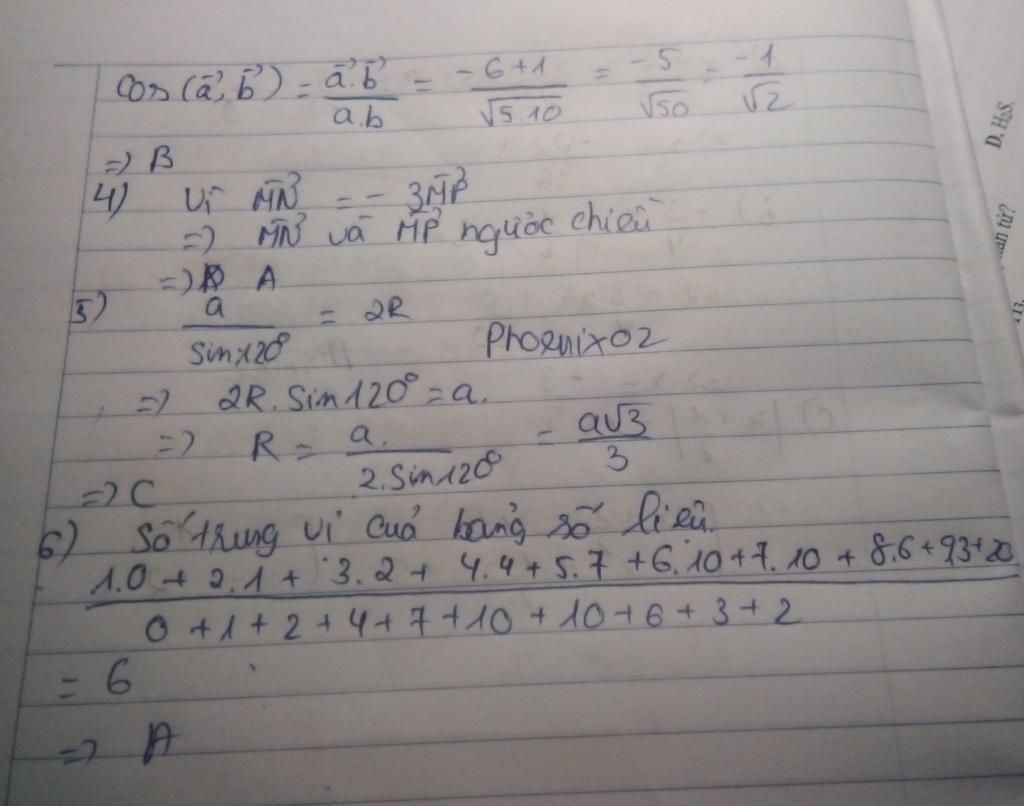 cos(a⃗, b⃗) = a⃗.b⃗ / a.b = -6+1 / √5.10 = -5 / √50 = -1 / √2
=> B
4) Vì MN⃗ = - 3MP⃗
=> MN⃗ và MP⃗ ngược chiều
=> A
5) a / sin120° = 2R
Phoenix02
=> 2R.sin120° = a.
=> R = a. / 2.sin120° = a√3 / 3
=> C
6) Số trung vị cuả bảng số liệu.
1.0 + 2.1 + 3.2 + 4.4 + 5.7 + 6.10 + 7.10 + 8.6 + 9.3 + 20
0 + 1 + 2 + 4 + 7 + 10 + 10 + 6 + 3 + 2
= 6
=> A
D. H₂S.
tử?